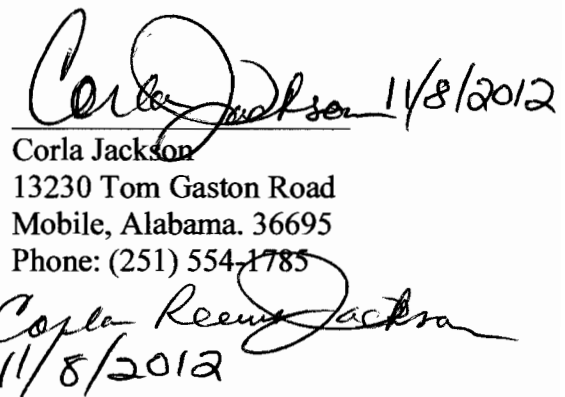 Corla Jackson 11/8/2012
Corla Jackson
13230 Tom Gaston Road
Mobile, Alabama. 36695
Phone: (251) 554-1785
Corla Jackson
11/8/2012